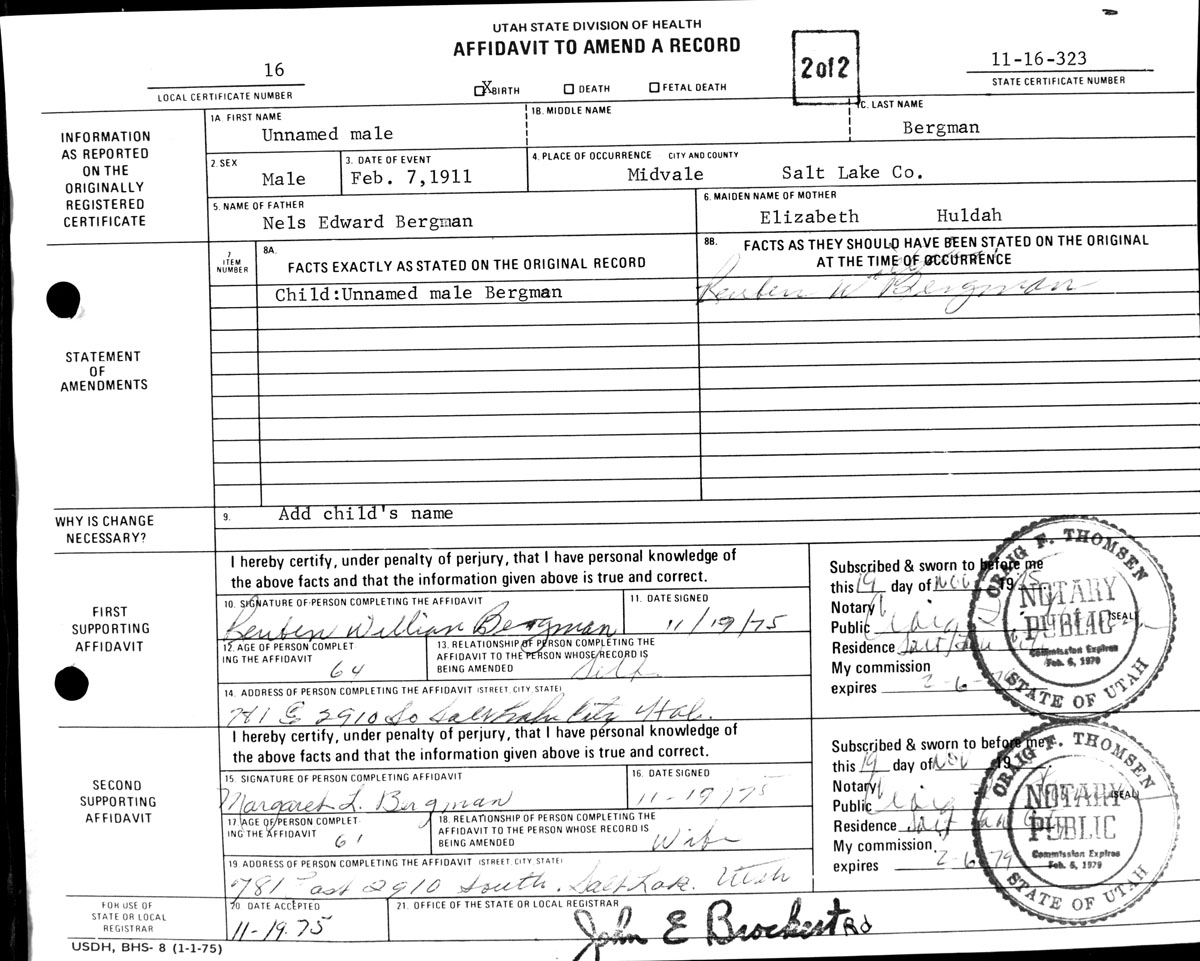 UTAH STATE DIVISION OF HEALTH
AFFIDAVIT TO AMEND A RECORD
2 of 2
16
LOCAL CERTIFICATE NUMBER
X BIRTH DEATH FETAL DEATH
11-16-323
STATE CERTIFICATE NUMBER
INFORMATION AS REPORTED ON THE ORIGINALLY REGISTERED CERTIFICATE
1A. FIRST NAME 1B. MIDDLE NAME 1C. LAST NAME
Unnamed male Bergman
2. SEX 3. DATE OF EVENT 4. PLACE OF OCCURRENCE CITY AND COUNTY
Male Feb. 7,1911 Midvale Salt Lake Co.
5. NAME OF FATHER 6. MAIDEN NAME OF MOTHER
Nels Edward Bergman Elizabeth Huldah
STATEMENT OF AMENDMENTS
7 ITEM NUMBER
8A. FACTS EXACTLY AS STATED ON THE ORIGINAL RECORD
8B. FACTS AS THEY SHOULD HAVE BEEN STATED ON THE ORIGINAL
AT THE TIME OF OCCURRENCE
Child:Unnamed male Bergman Reuben W Bergman
WHY IS CHANGE NECESSARY?
9. Add child's name
FIRST SUPPORTING AFFIDAVIT
I hereby certify, under penalty of perjury, that I have personal knowledge of
the above facts and that the information given above is true and correct.
10. SIGNATURE OF PERSON COMPLETING THE AFFIDAVIT 11. DATE SIGNED
Reuben William Bergman 11/19/75
12. AGE OF PERSON COMPLETING THE AFFIDAVIT
64
13. RELATIONSHIP OF PERSON COMPLETING THE AFFIDAVIT TO THE PERSON WHOSE RECORD IS BEING AMENDED
Self
14. ADDRESS OF PERSON COMPLETING THE AFFIDAVIT (STREET, CITY, STATE)
781 E 2910 So Salt Lake City Utah.
Subscribed & sworn to before me
this 19 day of Nov 1975
Notary
Public Craig
Residence Salt Lake
My commission
expires 2-6-79
CRAIG F. THOMSEN
NOTARY
PUBLIC
(SEAL)
Commission Expires
Feb. 6, 1979
STATE OF UTAH
SECOND SUPPORTING AFFIDAVIT
I hereby certify, under penalty of perjury, that I have personal knowledge of
the above facts and that the information given above is true and correct.
15. SIGNATURE OF PERSON COMPLETING AFFIDAVIT 16. DATE SIGNED
Margaret L. Bergman 11-19/75
17. AGE OF PERSON COMPLETING THE AFFIDAVIT
61
18. RELATIONSHIP OF PERSON COMPLETING THE AFFIDAVIT TO THE PERSON WHOSE RECORD IS BEING AMENDED
Wife
19 ADDRESS OF PERSON COMPLETING THE AFFIDAVIT (STREET, CITY, STATE)
781 East 2910 South. Salt Lake. Utah
Subscribed & sworn to before me
this 19 day of Nov 19
Notary
Public Craig
Residence Salt Lake
My commission
expires 2-6-79
CRAIG F. THOMSEN
NOTARY
PUBLIC
(SEAL)
Commission Expires
Feb. 6, 1979
STATE OF UTAH
FOR USE OF STATE OR LOCAL REGISTRAR
20 DATE ACCEPTED 21. OFFICE OF THE STATE OR LOCAL REGISTRAR
11-19-75 John E Brockert Rd
USDH, BHS- 8 (1-1-75)